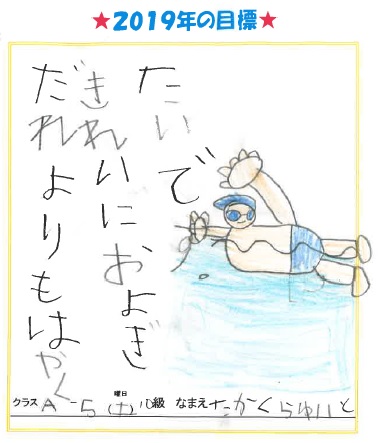 ★2019年の目標★
だれよりもはやく
きれいにおよぎ
たいで
クラス A-5 (土) 曜日 10級 なまえ たかくらゆいと